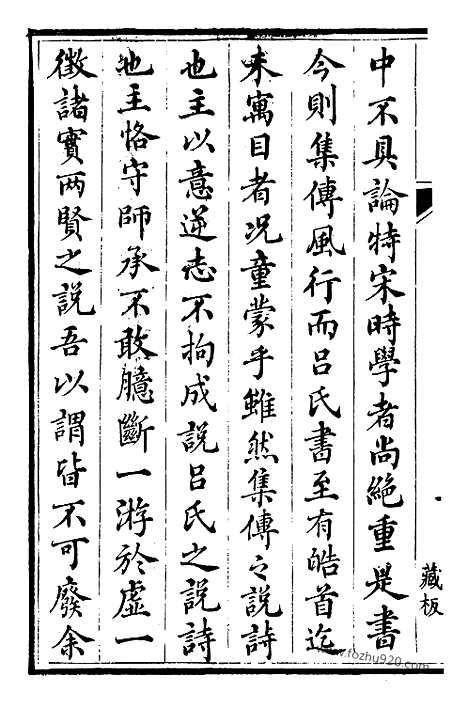 中不具論特宋時學者尚絶重是書
今則集傳風行而吕氏書至有皓首迄
未寓目者况童蒙乎雖然集傳之説詩
也主以意逆志不拘成説吕氏之説詩
也主恪守師承不敢臆斷一游於虚一
徵諸實两賢之説吾以謂皆不可廢余
藏板
www.fozhy920.com